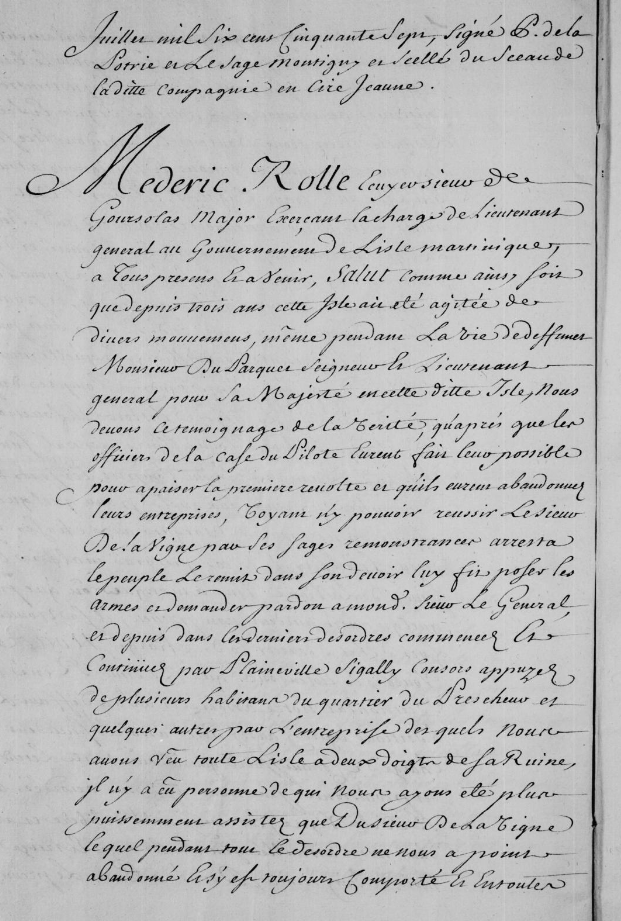 Juillet mil Six cent Cinquante Sept, Signé P. de la
Potrie et Le Sage Montigny et Scellé du Sceau de
la ditte Compagnie en Cire Jeaune.
Mederic Rolle Ecuyer sieur de
Goursolas Major Exerçant la charge de Lieutenant
general au Gouvernement de Lisle martinique,
a Tous presens Et a Venir, Salut comme ainsy soit
que depuis trois ans cette Isle ait été agitée de
divers mouvemens, même pendant La vie de deffunct
Monsieur Du Parquet Seigneur Et Lieutenant
general pour Sa Majesté en cette ditte Isle, Nous
devons ce temoignage de la Verité, qu'aprés que les
officiers de la case du Pilote Eurent fait leur possible
pour apaiser la premiere revolte et qu'ils eurent abandonnez
leurs entreprises, Voyant n'y pouvoir reussir Le sieur
De la Vigne par Ses sages remonstrances arresta
le peuple Le remit dans son devoir luy fit poser les
armes et demander pardon a mond. Sieur Le General,
et depuis dans les derniers desordres commencez Et
Continüez par Plaineville Sigally Consors appuyez
de plusieurs habitans du quartier du Prescheur et
quelques autres par L'entreprise des quels Nous
avons Veu toute Lisle a deux doigts de sa Ruine,
il n'y a eu personne de qui Nous ayons été plus
puissemment assistez que Du sieur De La Vigne
le quel pendant tout le desordre ne nous a point
abandonné Et s'y est toujours Comporté Et En toutes